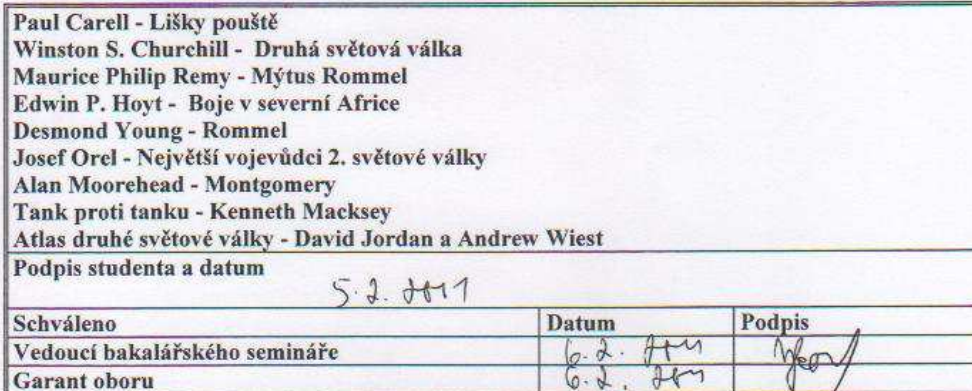 Paul Carell - Lišky pouště
Winston S. Churchill - Druhá světová válka
Maurice Philip Remy - Mýtus Rommel
Edwin P. Hoyt - Boje v severní Africe
Desmond Young - Rommel
Josef Orel - Největší vojevůdci 2. světové války
Alan Moorehead - Montgomery
Tank proti tanku - Kenneth Macksey
Atlas druhé světové války - David Jordan a Andrew Wiest
Podpis studenta a datum
5. 2. 2011
Schváleno Datum Podpis
Vedoucí bakalářského semináře 6. 2. 2011
Garant oboru 6. 2. 2011